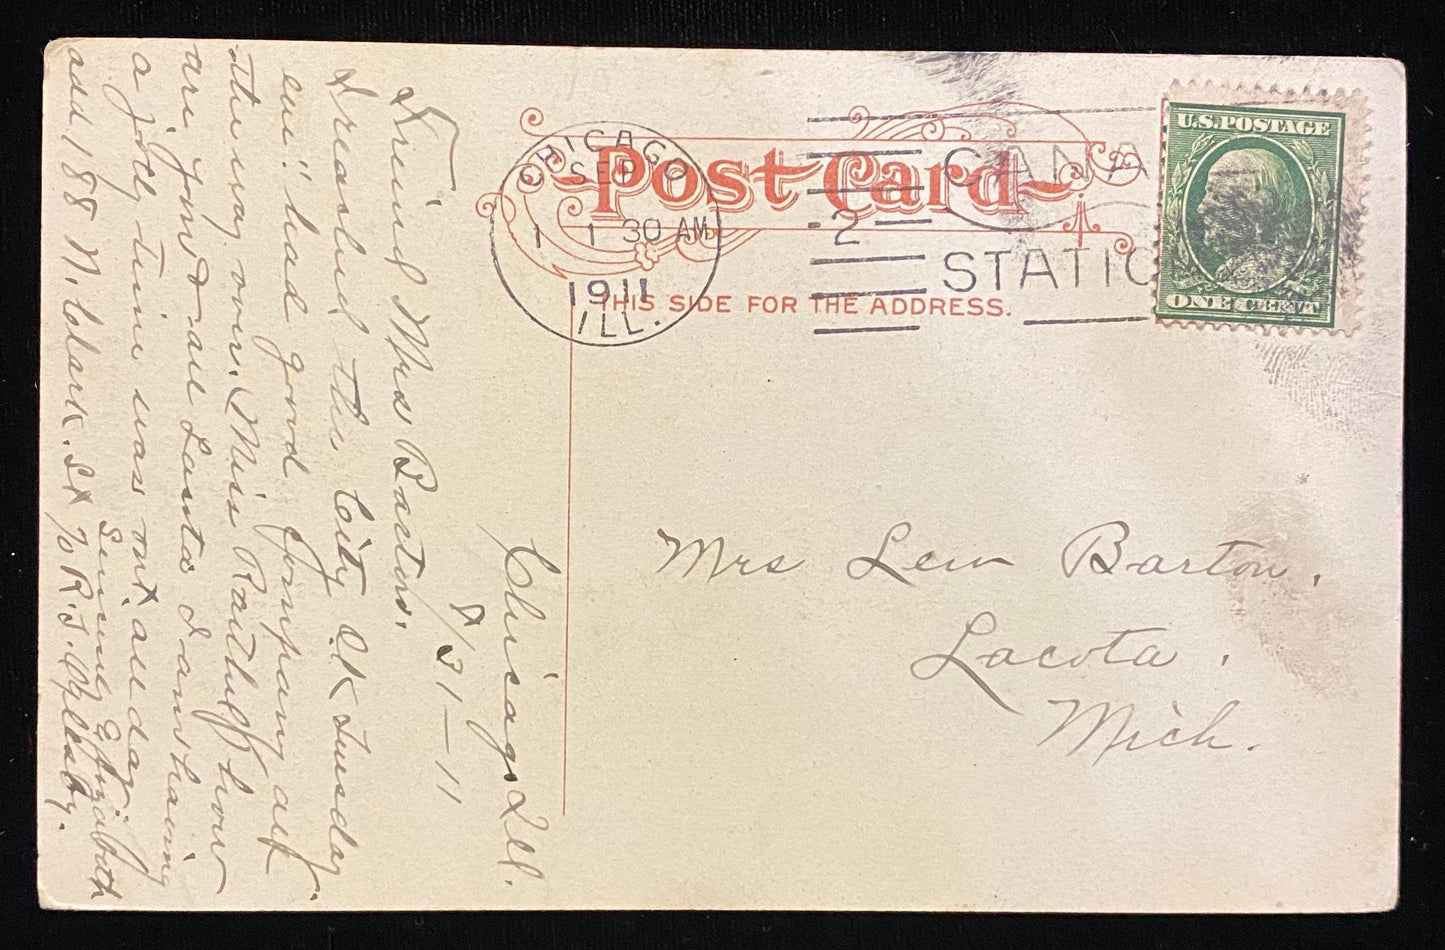 Post Card
THIS SIDE FOR THE ADDRESS.
CHICAGO
SEP
1 1 30 AM
1911
ILL.
CANA
2
STATIO
U.S.POSTAGE
ONE CENT
Chicago Ill.
31-11
Friend Mrs Barton.
I reached the City OK Tuesday.
eve'. had good company all
the way over. Miss Ratliff how
are you & all Lants I am having
a jolly time was out all day.
Sincerely Elizabeth
add 188 N. Clark. St % R. J. Oglesby.
Mrs Lew Barton.
Lacota.
Mich.